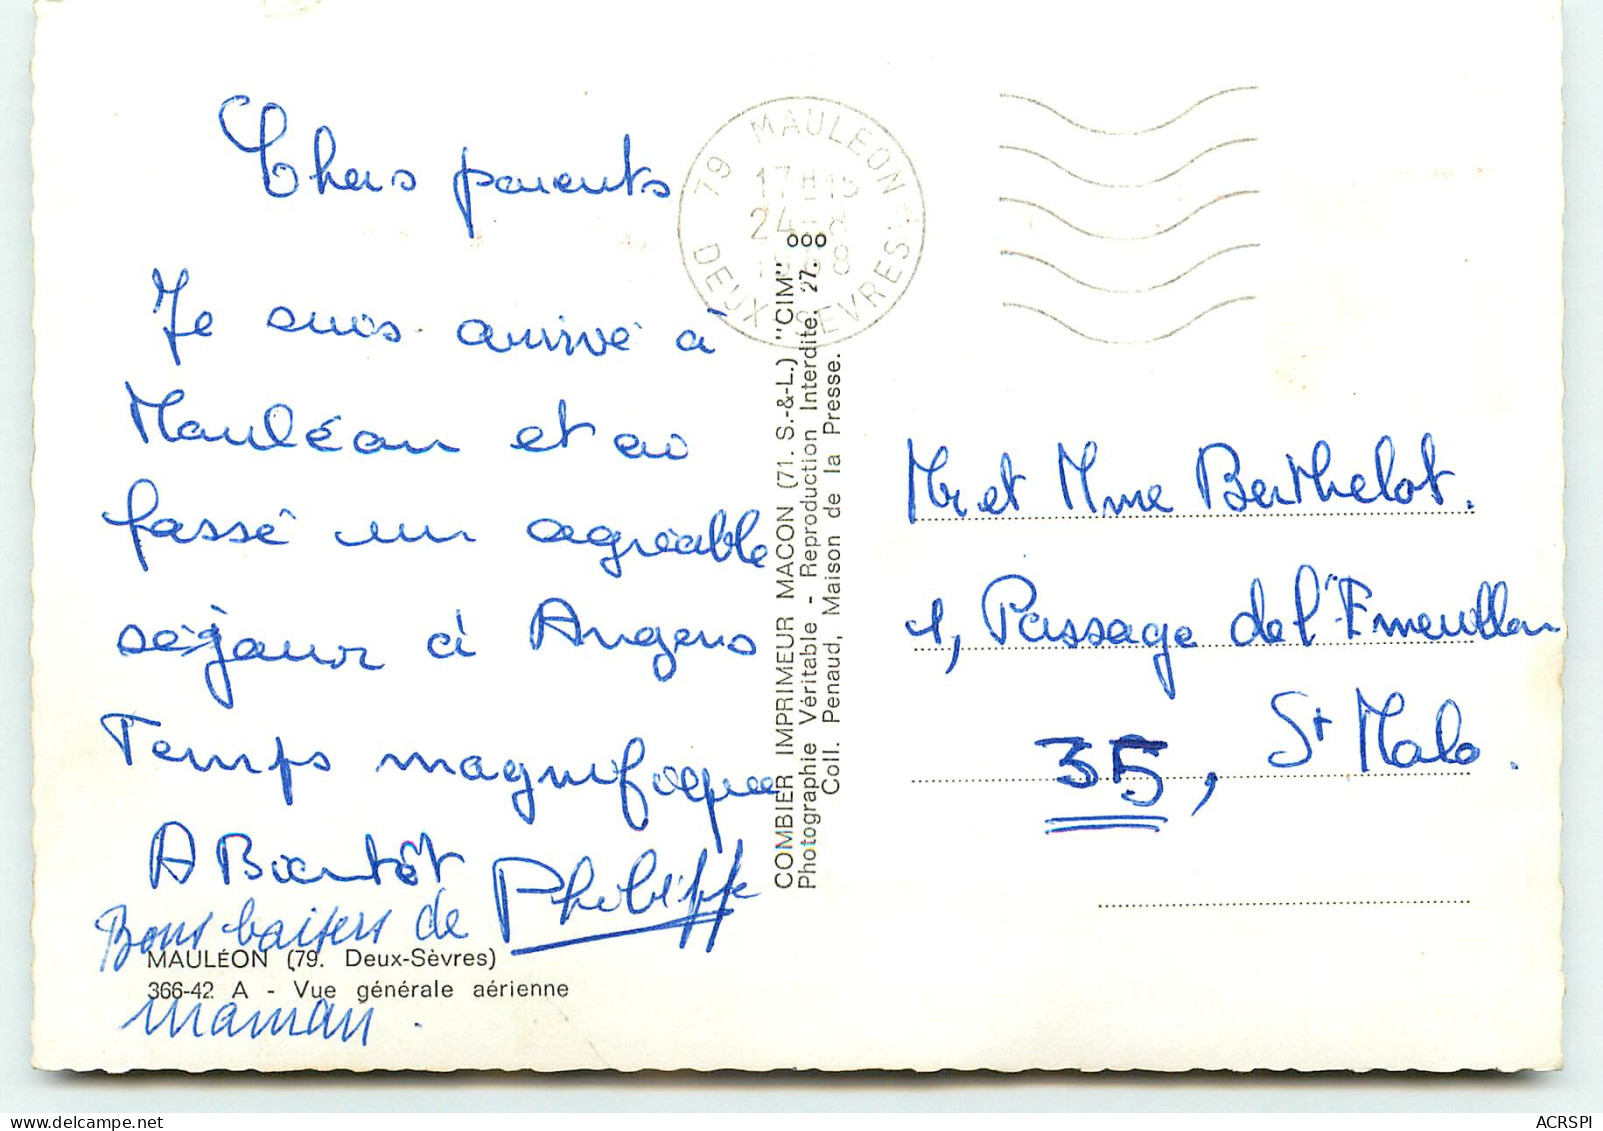 Chers parents
Je suis arrivé à
Mauléon et ai
passé un agréable
séjour à Angers
Temps magnifique
A Bientôt
Philippe
Bons baisers de
maman.
MAULÉON (79. Deux-Sèvres)
366-42 A - Vue générale aérienne
79 MAULEON
17H15
24-8
1968
DEUX SEVRES
COMBIER IMPRIMEUR MACON (71. S.-&-L.) "CIM"
Photographie Véritable - Reproduction Interdite. 27. ooo
Coll. Penaud, Maison de la Presse.
Mr et Mme Berthelot.
1, Passage de l'Emerillon
35, St Malo.
ACRSPI